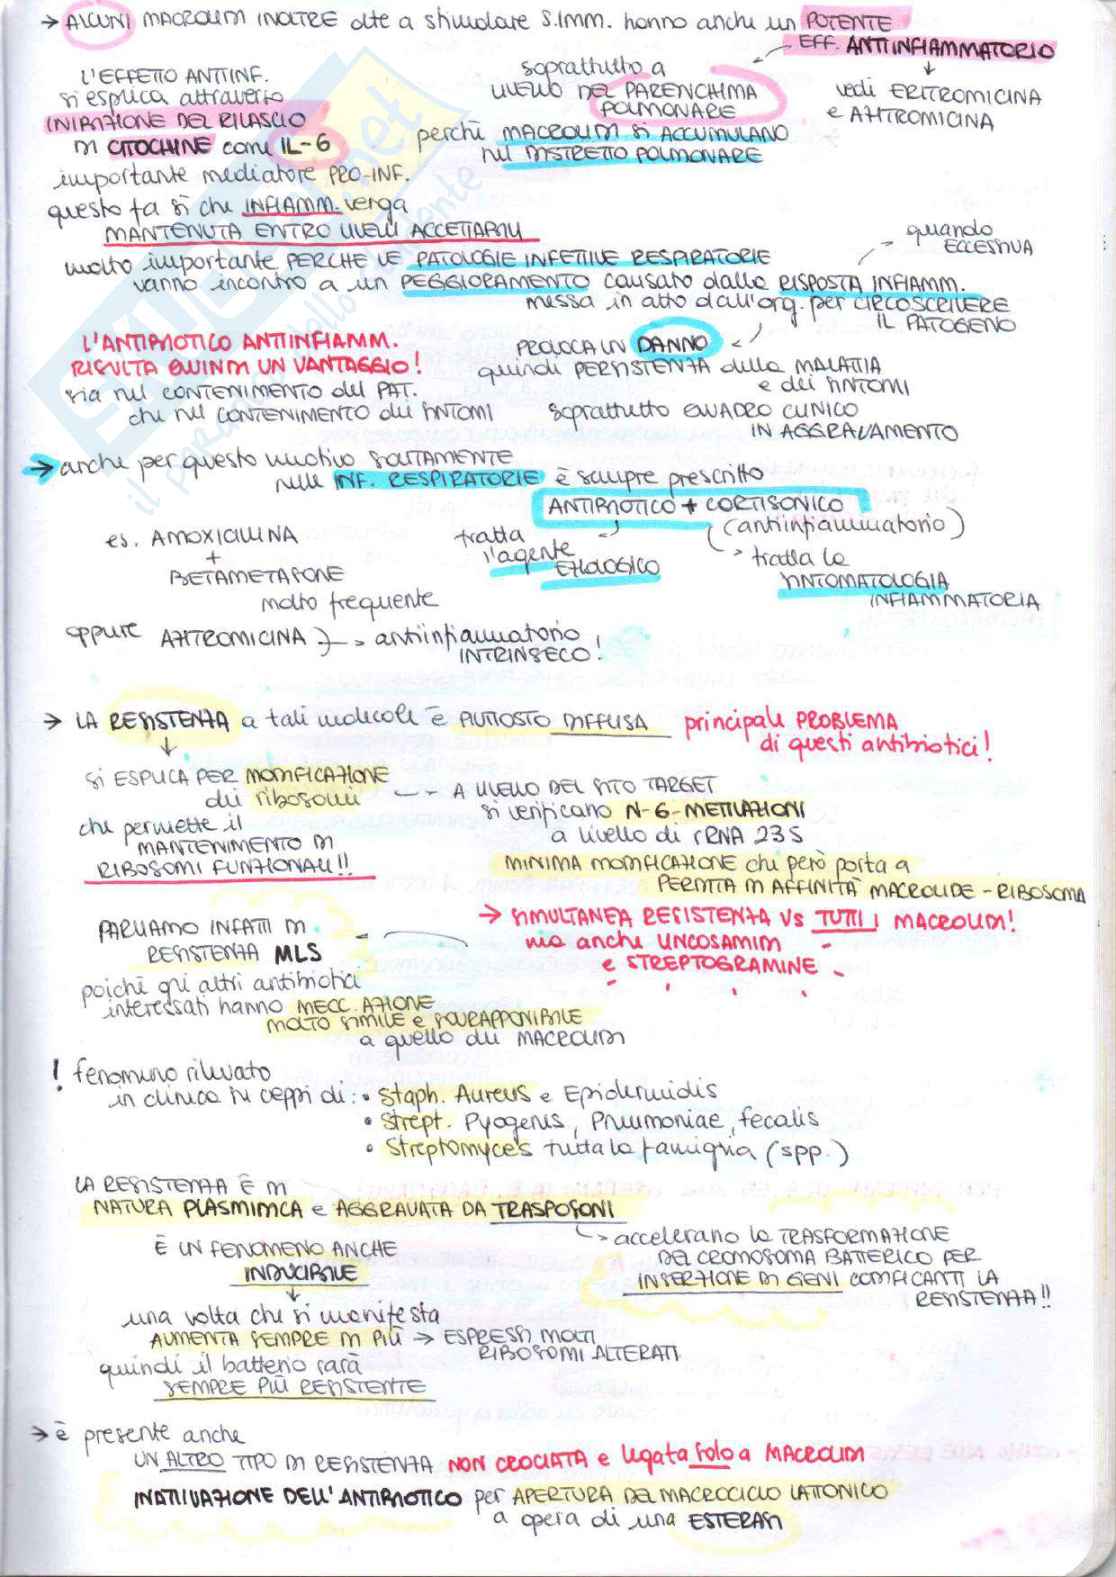 → ALCUNI MACROLIDI INOLTRE oltre a stimolare S.IMM. hanno anche un POTENTE
EFF. ANTIINFIAMMATORIO
L'EFFETTO ANTIINF.
si esplica attraverso
INIBIZIONE DEL RILASCIO
DI CITOCHINE come IL-6
importante mediatore PRO-INF.
soprattutto a
LIVELLO DEL PARENCHIMA
POLMONARE
perchè MACROLIDI SI ACCUMULANO
nel DISTRETTO POLMONARE
vedi ERITROMICINA
e AZITROMICINA
questo fa sì che INFIAMM. venga
MANTENUTA ENTRO LIVELLI ACCETTABILI
molto importante PERCHÈ LE PATOLOGIE INFETTIVE RESPIRATORIE
vanno incontro a un PEGGIORAMENTO causato dalla RISPOSTA INFIAMM.
quando
ECCESSIVA
messa in atto dall'org. per CIRCOSCRIVERE
IL PATOGENO
L'ANTIBIOTICO ANTIINFIAMM.
RISULTA QUINDI UN VANTAGGIO!
sia nel CONTENIMENTO del PAT.
che nel CONTENIMENTO dei SINTOMI
PROVOCA UN DANNO
quindi PERSISTENZA della MALATTIA
e dei SINTOMI
soprattutto QUADRO CLINICO
IN AGGRAVAMENTO
→ anche per questo motivo SOLITAMENTE
nelle INF. RESPIRATORIE è sempre prescritto
ANTIBIOTICO + CORTISONICO
(antiinfiammatorio)
es. AMOXICILLINA
+
BETAMETASONE
molto frequente
tratta
l'agente
EZIOLOGICO
tratta la
SINTOMATOLOGIA
INFIAMMATORIA
oppure AZITROMICINA } → antiinfiammatorio
INTRINSECO!
→ LA RESISTENZA a tali molecole è PIUTTOSTO DIFFUSA principale PROBLEMA
di questi antibiotici!
si ESPLICA PER MODIFICAZIONE
dei ribosomi -- A LIVELLO DEL SITO TARGET
si verificano N-6-METILAZIONI
a livello di rRNA 23S
che permette il
MANTENIMENTO DI
RIBOSOMI FUNZIONALI!!
MINIMA MODIFICAZIONE che però porta a
PERDITA DI AFFINITÀ MACROLIDE - RIBOSOMA
→ SIMULTANEA RESISTENZA VS TUTTI I MACROLIDI!
ma anche LINCOSAMIDI
e STREPTOGRAMINE
PARLIAMO INFATTI DI
RESISTENZA MLS
poichè gli altri antibiotici
interessati hanno MECC. AZIONE
MOLTO SIMILE e SOVRAPPONIBILE
a quello dei MACROLIDI
! fenomeno rilevato
in clinica in ceppi di: • Staph. Aureus e Epidermidis
• Strept. Pyogenis, Pneumoniae, fecalis
• Streptomyces tutta la famiglia (spp.)
LA RESISTENZA È DI
NATURA PLASMIDICA e AGGRAVATA DA TRASPOSONI
→ accelerano la TRASFORMAZIONE
DEL CROMOSOMA BATTERICO PER
INSERZIONE DI GENI CODIFICANTI LA
RESISTENZA!!
È UN FENOMENO ANCHE
INDUCIBILE
una volta che si manifesta
AUMENTA SEMPRE DI PIÙ → ESPRESSI MOLTI
RIBOSOMI ALTERATI
quindi il batterio sarà
SEMPRE PIÙ RESISTENTE
→ è presente anche
UN ALTRO TIPO DI RESISTENZA NON CROCIATA e legata solo a MACROLIDI
INATTIVAZIONE DELL'ANTIBIOTICO per APERTURA DEL MACROCICLO LATTONICO
a opera di una ESTERASI